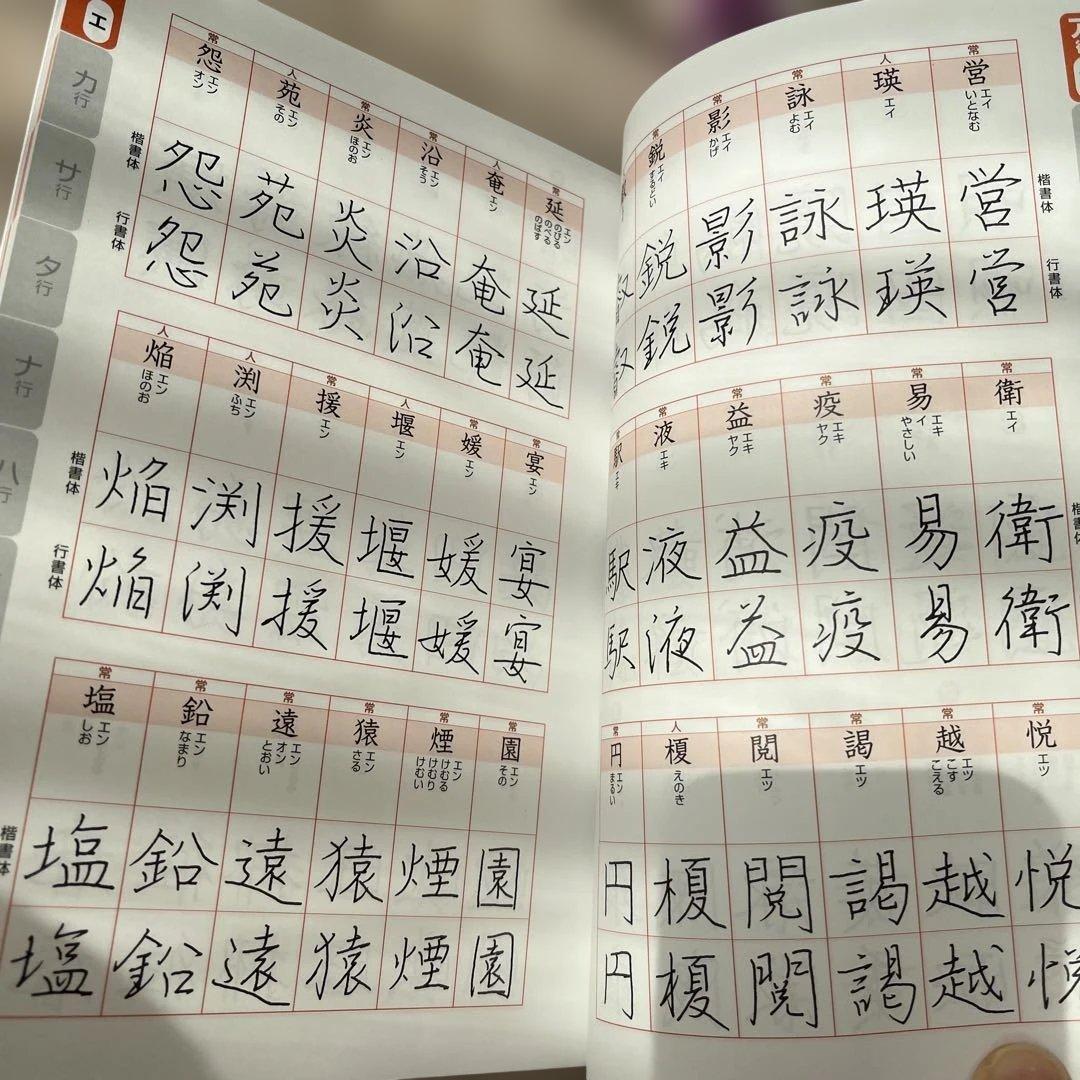 ア
常 人 常 常 常
営 瑛 詠 影 鋭
エイ いとなむ
エイ
エイ よむ
エイ かげ
エイ するどい
楷書体
営 瑛 詠 影 鋭
行書体
営 瑛 詠 影 鋭
常 常 常 常 常 常
衛 易 疫 益 液 駅
エイ
エキ イ やさしい
エキ ヤク
エキ ヤク
エキ
エキ
楷書体
衛 易 疫 益 液 駅
衛 易 疫 益 液 駅
常 常 常 常 人 常
悦 越 謁 閲 榎 円
エツ
エツ こす こえる
エツ
エツ
えのき
エン まるい
悦 越 謁 閲 榎 円
悦 越 謁 閲 榎 円
エ
カ行
サ行
タ行
ナ行
ハ行
常 人 常 常 人 常
延 奄 沿 炎 苑 怨
エン のびる のべる のばす
エン
エン そう
エン ほのお
エン その
エン オン
楷書体
延 奄 沿 炎 苑 怨
行書体
延 奄 沿 炎 苑 怨
常 常 人 常 人 人
宴 媛 堰 援 渕 焔
エン
エン
エン
エン
エン ふち
エン ほのお
楷書体
宴 媛 堰 援 渕 焔
行書体
宴 媛 堰 援 渕 焔
常 常 常 常 常 常
園 煙 猿 遠 鉛 塩
エン その
エン けむる けむり けむい
エン さる
エン オン とおい
エン なまり
エン しお
楷書体
園 煙 猿 遠 鉛 塩
園 煙 猿 遠 鉛 塩